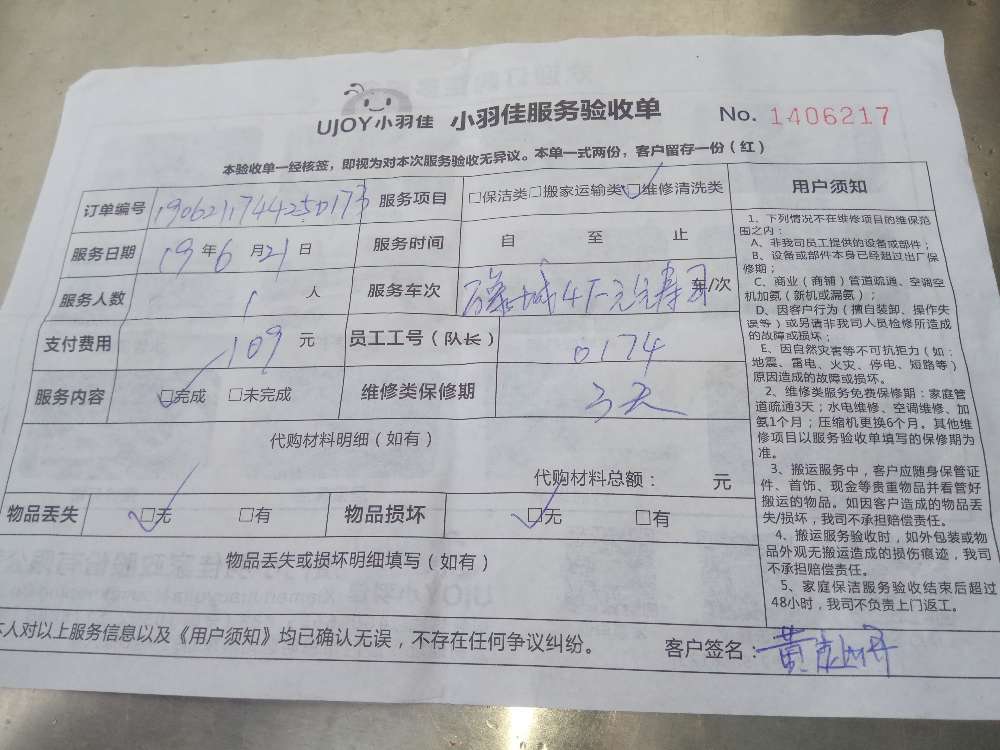 UJOY小羽佳 小羽佳服务验收单 No. 1406217
本验收单一经核签，即视为对本次服务验收无异议。本单一式两份，客户留存一份（红）
订单编号 1906211744250173 服务项目 □保洁类□搬家运输类□维修清洗类
服务日期 19年6月21日 服务时间 自 至 止
服务人数 1 人 服务车次 车/次
支付费用 109 元 员工工号（队长） 0174
服务内容 □完成 □未完成 维修类保修期 3天
代购材料明细（如有）
代购材料总额： 元
物品丢失 □无 □有 物品损坏 □无 □有
物品丢失或损坏明细填写（如有）
用户须知
1、下列情况不在维修项目的维保范
围之内：
A、非我司员工提供的设备或部件；
B、设备或部件本身已经超过出厂保
修期；
C、商业（商铺）管道疏通、空调空
机加氨（新机或漏氨）；
D、因客户行为（擅自装卸、操作失
误等）或另请非我司人员检修所造成
的故障或损坏；
E、因自然灾害等不可抗拒力（如：
地震、雷电、火灾、停电、短路等）
原因造成的故障或损坏。
2、维修类服务免费保修期：家庭管
道疏通3天；水电维修、空调维修、加
氨1个月；压缩机更换6个月。其他维
修项目以服务验收单填写的保修期为
准。
3、搬运服务中，客户应随身保管证
件、首饰、现金等贵重物品并看管好
搬运的物品。如因客户造成的物品丢
失/损坏，我司不承担赔偿责任。
4、搬运服务验收时，如外包装或物
品外观无搬运造成的损伤痕迹，我司
不承担赔偿责任。
5、家庭保洁服务验收结束后超过
48小时，我司不负责上门返工。
本人对以上服务信息以及《用户须知》均已确认无误，不存在任何争议纠纷。 客户签名：黄